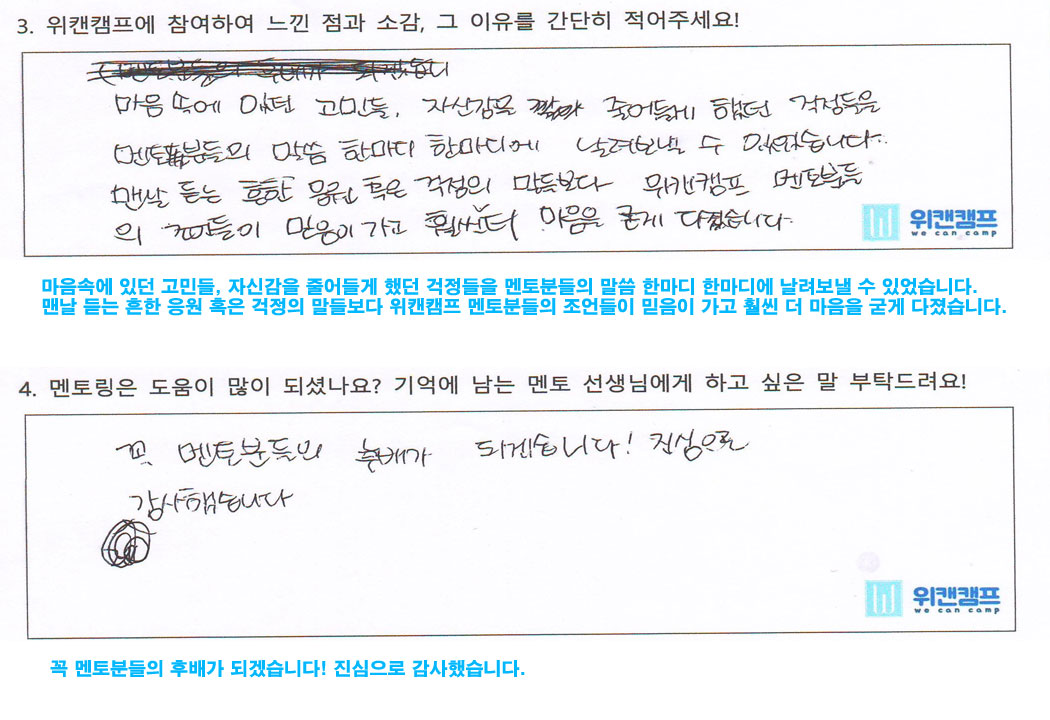 3. 위캔캠프에 참여하여 느낀 점과 소감, 그 이유를 간단히 적어주세요!
멘토분들의 후배가 되겠습니
마음 속에 있던 고민들, 자신감을 줄어들게 했던 걱정들을
멘토분들의 말씀 한마디 한마디에 날려보낼 수 있었습니다.
맨날 듣는 흔한 응원 혹은 걱정의 말들보다 위캔캠프 멘토분들
의 조언들이 믿음이 가고 훨씬 더 마음을 굳게 다졌습니다.
위캔캠프
we can camp
마음속에 있던 고민들, 자신감을 줄어들게 했던 걱정들을 멘토분들의 말씀 한마디 한마디에 날려보낼 수 있었습니다.
맨날 듣는 흔한 응원 혹은 걱정의 말들보다 위캔캠프 멘토분들의 조언들이 믿음이 가고 훨씬 더 마음을 굳게 다졌습니다.
4. 멘토링은 도움이 많이 되셨나요? 기억에 남는 멘토 선생님에게 하고 싶은 말 부탁드려요!
꼭 멘토분들의 후배가 되겠습니다! 진심으로
감사했습니다
위캔캠프
we can camp
꼭 멘토분들의 후배가 되겠습니다! 진심으로 감사했습니다.